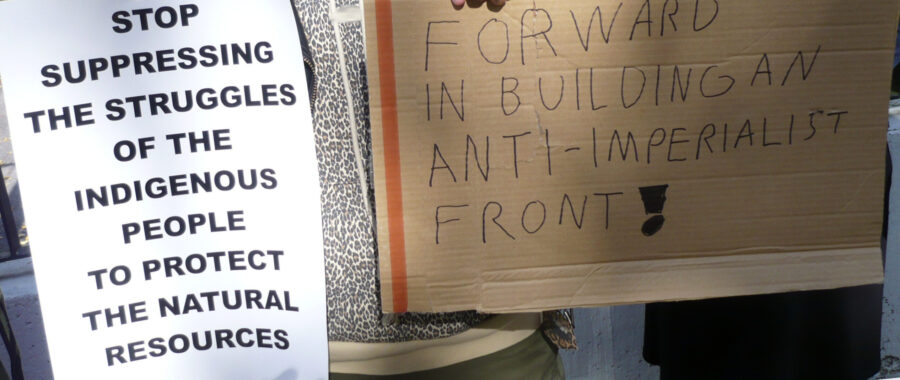 STOP
SUPPRESSING
THE STRUGGLES
OF THE
INDIGENOUS
PEOPLE
TO PROTECT
THE NATURAL
RESOURCES
FORWARD
IN BUILDING AN
ANTI-IMPERIALIST
FRONT!